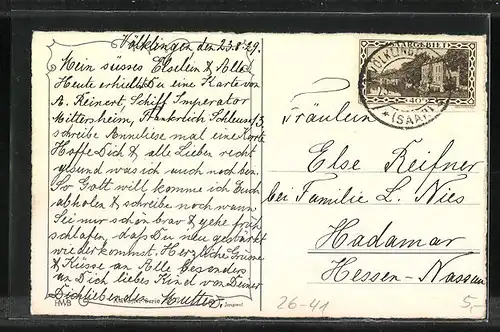 Völklingen den 23.8.29.
Mein süsses Elselein & Alle
Heute erhieltst Du eine Karte von
A. Reinert, Schiff Imperator
Mittersheim, Frankreich Schleuse 13,
schreibe Anneliese mal eine Karte
Hoffe Dich & alle Lieben recht
gesund was ich auch noch bin.
So Gott will komme ich Euch
abholen & schreibe noch wann
Sei nur schön brav & gehe früh
schlafen, daß Du neu gestärkt
wiederkommst. Herzliche Grüsse
& Küsse an Alle besonders
an Dich liebes Kind von Deiner
Dichliebenden Mutter.
HWB
Serie
SAARGEBIET
40
(SAAR)
Fräulein
Else Reifner
bei Familie L. Nies
Hadamar
Hessen-Nassau
26-41
5,-